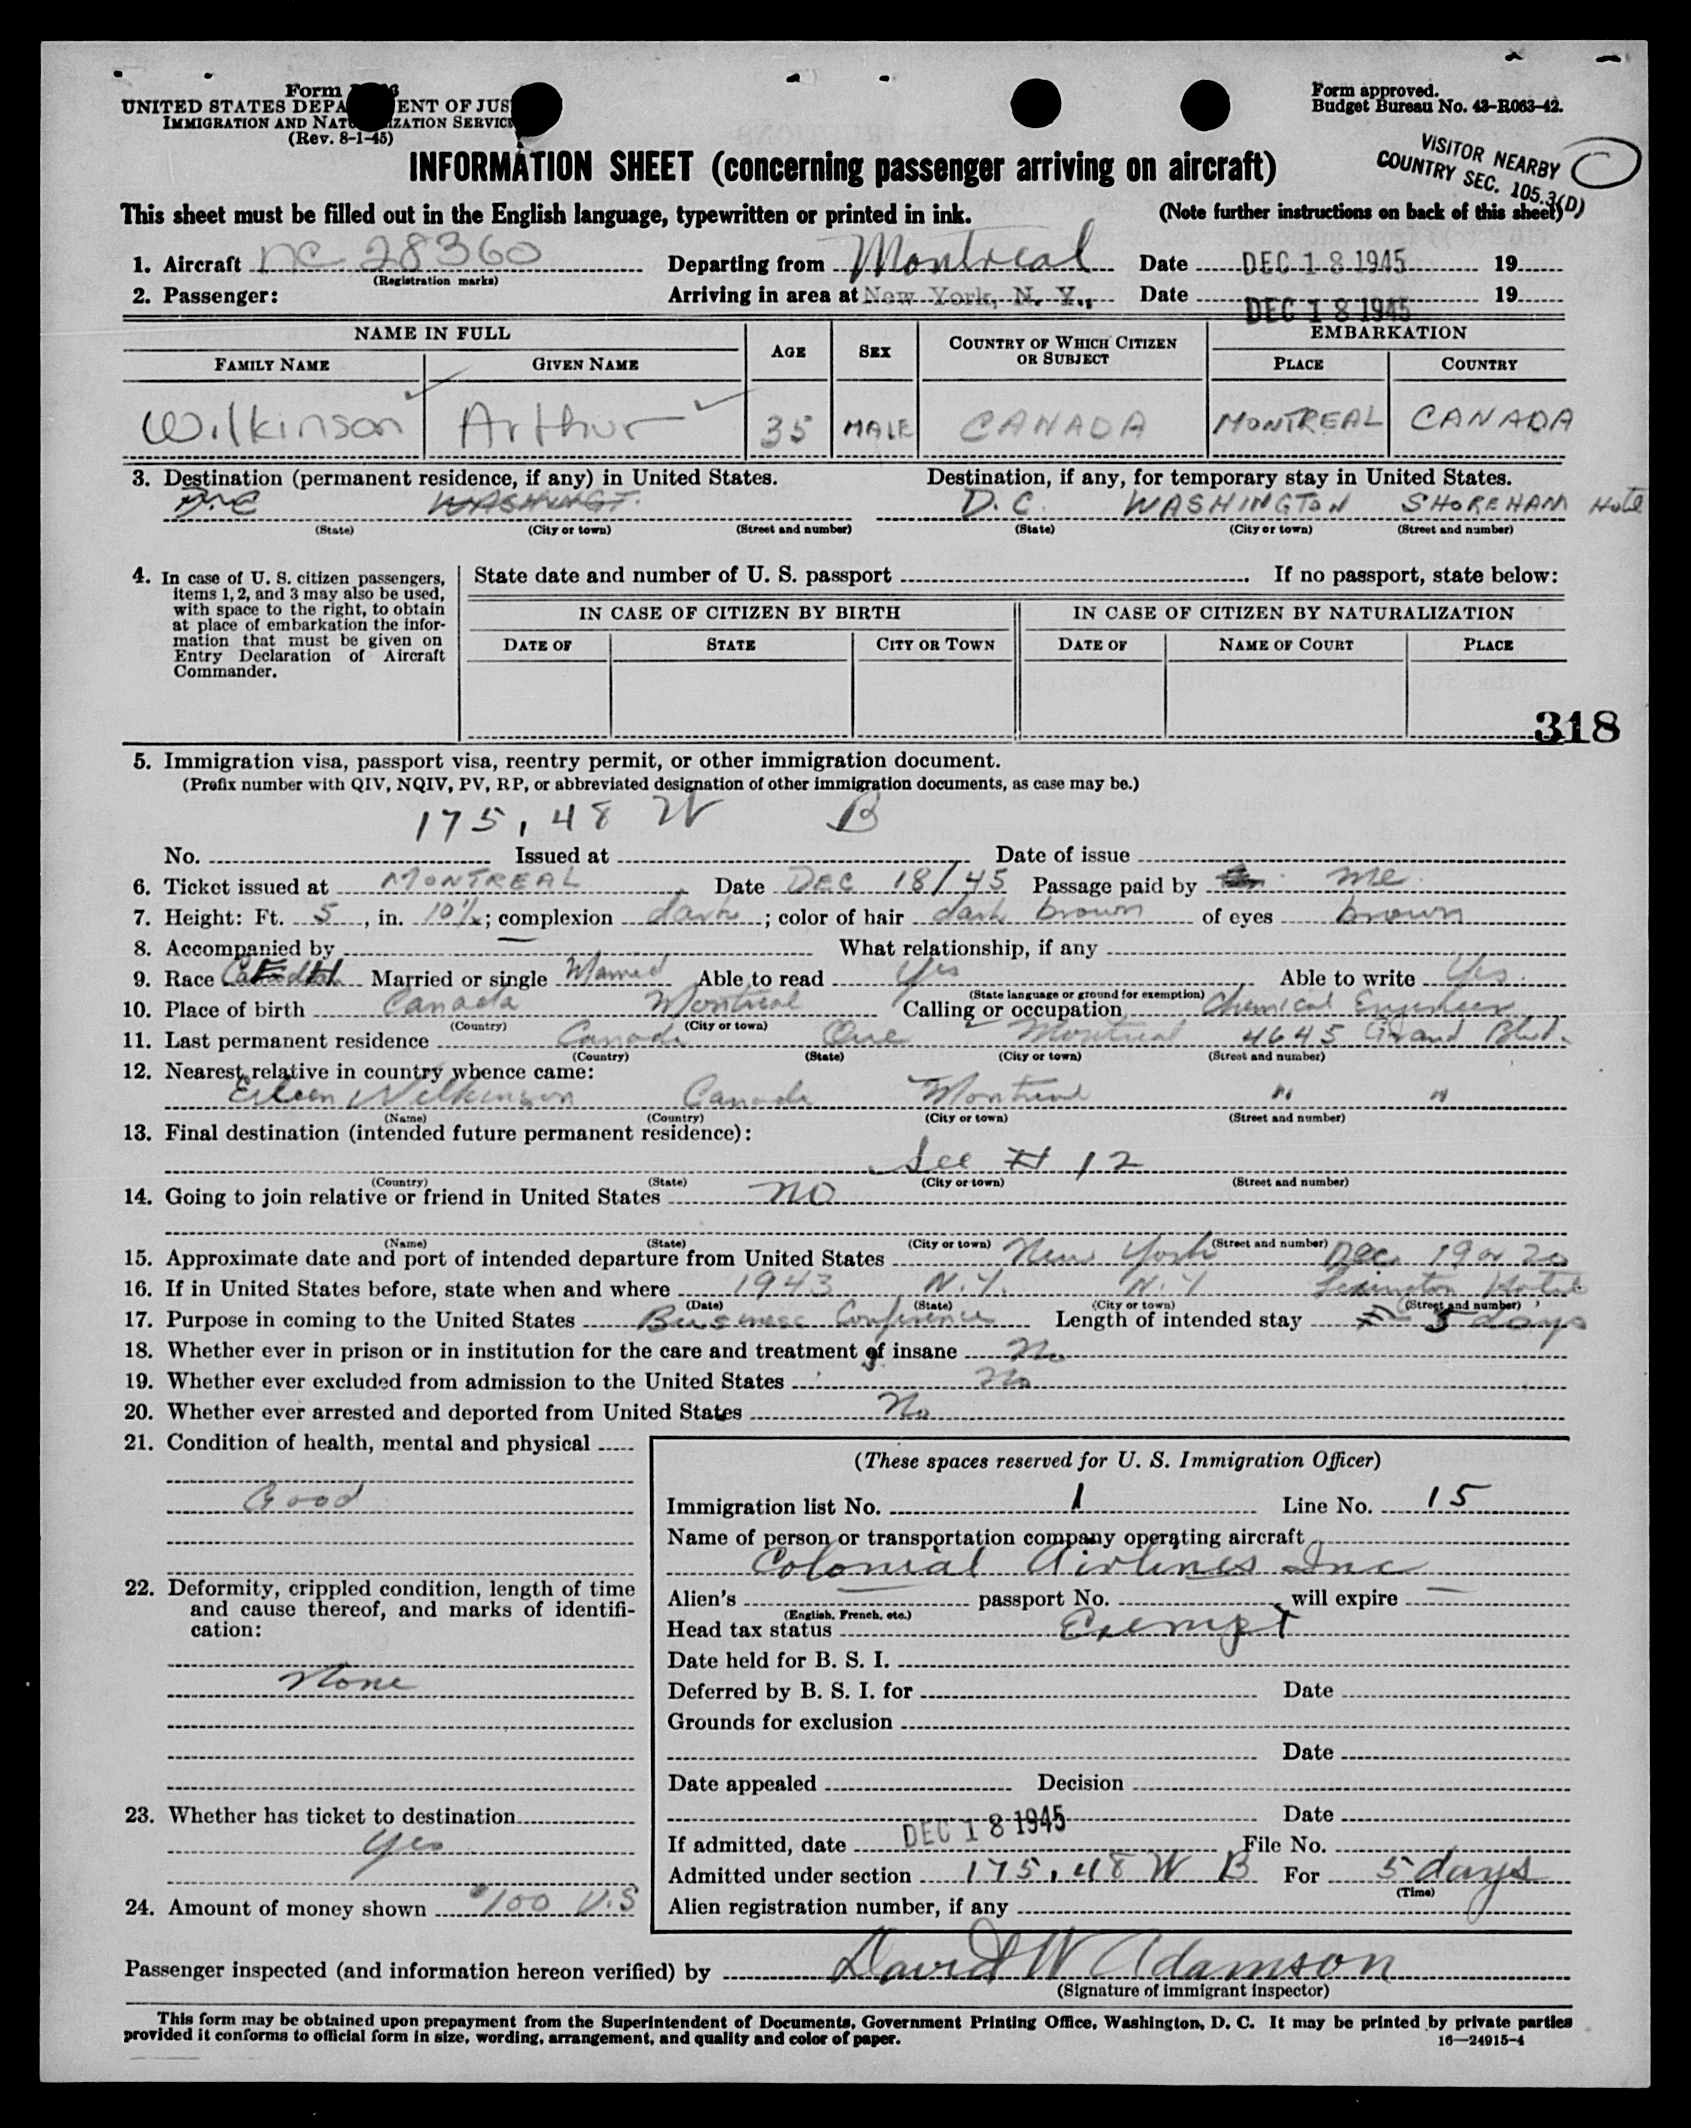 Form
UNITED STATES DEPA ENT OF JUS
IMMIGRATION AND NAT IZATION SERVICE
(Rev. 8-1-45)
Form approved.
Budget Bureau No. 43-R063-42.
INFORMATION SHEET (concerning passenger arriving on aircraft)
VISITOR NEARBY
COUNTRY SEC. 105.3(D)
This sheet must be filled out in the English language, typewritten or printed in ink. (Note further instructions on back of this sheet)
1. Aircraft NC 28360 Departing from Montreal Date DEC 18 1945 19
(Registration marks)
2. Passenger: Arriving in area at New York, N. Y., Date DEC 18 1945 19
NAME IN FULL AGE SEX COUNTRY OF WHICH CITIZEN OR SUBJECT EMBARKATION
FAMILY NAME GIVEN NAME PLACE COUNTRY
Wilkinson Arthur 35 MALE CANADA MONTREAL CANADA
3. Destination (permanent residence, if any) in United States. Destination, if any, for temporary stay in United States.
D.C WASHINGT. D. C. WASHINGTON SHOREHAM Hotel
(State) (City or town) (Street and number) (State) (City or town) (Street and number)
4. In case of U. S. citizen passengers, items 1, 2, and 3 may also be used, with space to the right, to obtain at place of embarkation the information that must be given on Entry Declaration of Aircraft Commander.
State date and number of U. S. passport If no passport, state below:
IN CASE OF CITIZEN BY BIRTH IN CASE OF CITIZEN BY NATURALIZATION
DATE OF STATE CITY OR TOWN DATE OF NAME OF COURT PLACE
318
5. Immigration visa, passport visa, reentry permit, or other immigration document.
(Prefix number with QIV, NQIV, PV, RP, or abbreviated designation of other immigration documents, as case may be.)
175.48 W B
No. Issued at Date of issue
6. Ticket issued at MONTREAL Date DEC 18/45 Passage paid by me
7. Height: Ft. 5, in. 10½; complexion dark; color of hair dark brown of eyes brown
8. Accompanied by — What relationship, if any
9. Race Married or single Married Able to read Yes Able to write Yes
(State language or ground for exemption)
10. Place of birth Canada Montreal Calling or occupation Chemical Engineer
(Country) (City or town)
11. Last permanent residence Canada Que Montreal 4645 Grand Blvd.
(Country) (State) (City or town) (Street and number)
12. Nearest relative in country whence came:
Eileen Wilkinson Canada Montreal " "
(Name) (Country) (City or town) (Street and number)
13. Final destination (intended future permanent residence):
See # 12
(Country) (State) (City or town) (Street and number)
14. Going to join relative or friend in United States NO
(Name) (State) (City or town) (Street and number)
15. Approximate date and port of intended departure from United States New York Dec 19 or 20
16. If in United States before, state when and where 1943 N.Y. N.Y Lexington Hotel
(Date) (State) (City or town) (Street and number)
17. Purpose in coming to the United States Business Conference Length of intended stay 5 days
18. Whether ever in prison or in institution for the care and treatment of insane No
19. Whether ever excluded from admission to the United States No
20. Whether ever arrested and deported from United States No
21. Condition of health, mental and physical
Good
22. Deformity, crippled condition, length of time and cause thereof, and marks of identification:
None
23. Whether has ticket to destination
Yes
24. Amount of money shown $100 U.S
(These spaces reserved for U. S. Immigration Officer)
Immigration list No. 1 Line No. 15
Name of person or transportation company operating aircraft
Colonial Airlines Inc
Alien's — passport No. will expire —
(English, French, etc.)
Head tax status Exempt
Date held for B. S. I.
Deferred by B. S. I. for Date
Grounds for exclusion
Date
Date appealed Decision
Date
If admitted, date DEC 18 1945 File No.
Admitted under section 175.48 W B For 5 days
(Time)
Alien registration number, if any
Passenger inspected (and information hereon verified) by David W Adamson
(Signature of immigrant inspector)
This form may be obtained upon prepayment from the Superintendent of Documents, Government Printing Office, Washington, D. C. It may be printed by private parties
provided it conforms to official form in size, wording, arrangement, and quality and color of paper. 16—24915-4